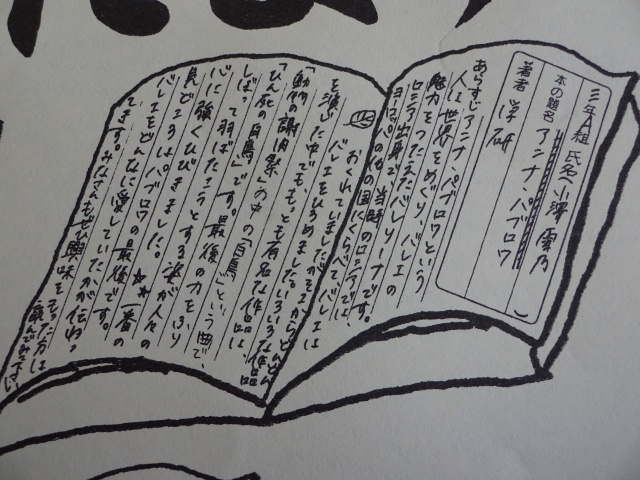 三年A組 氏名 小澤 雪乃
本の題名 アンナ・パブロワ
著者 学研
あらすじ アンナ・パブロワという
人は世界をめぐり、バレエの
魅力をつたえたバレリーナです。
ロシア出身で、当時のロシアでは、
ヨーロッパの他の国にくらべてバレエは
おくれていましたがそこからどんどん
バレエをひろめました。いろいろな作品
を演じた中でも、もっとも有名な作品は
「動物の謝肉祭」の中の「白鳥」という曲で、
「ひん死の白鳥」です。最後の力をふり
しぼって羽ばたこうとする姿が人々の
心に強くひびきました。★★一番の
見どころは、パブロワの最後です。
バレエをどんなに愛していたかが伝わっ
てきます。みなさんもぜひ興味をもった方は
読んでみて下さい